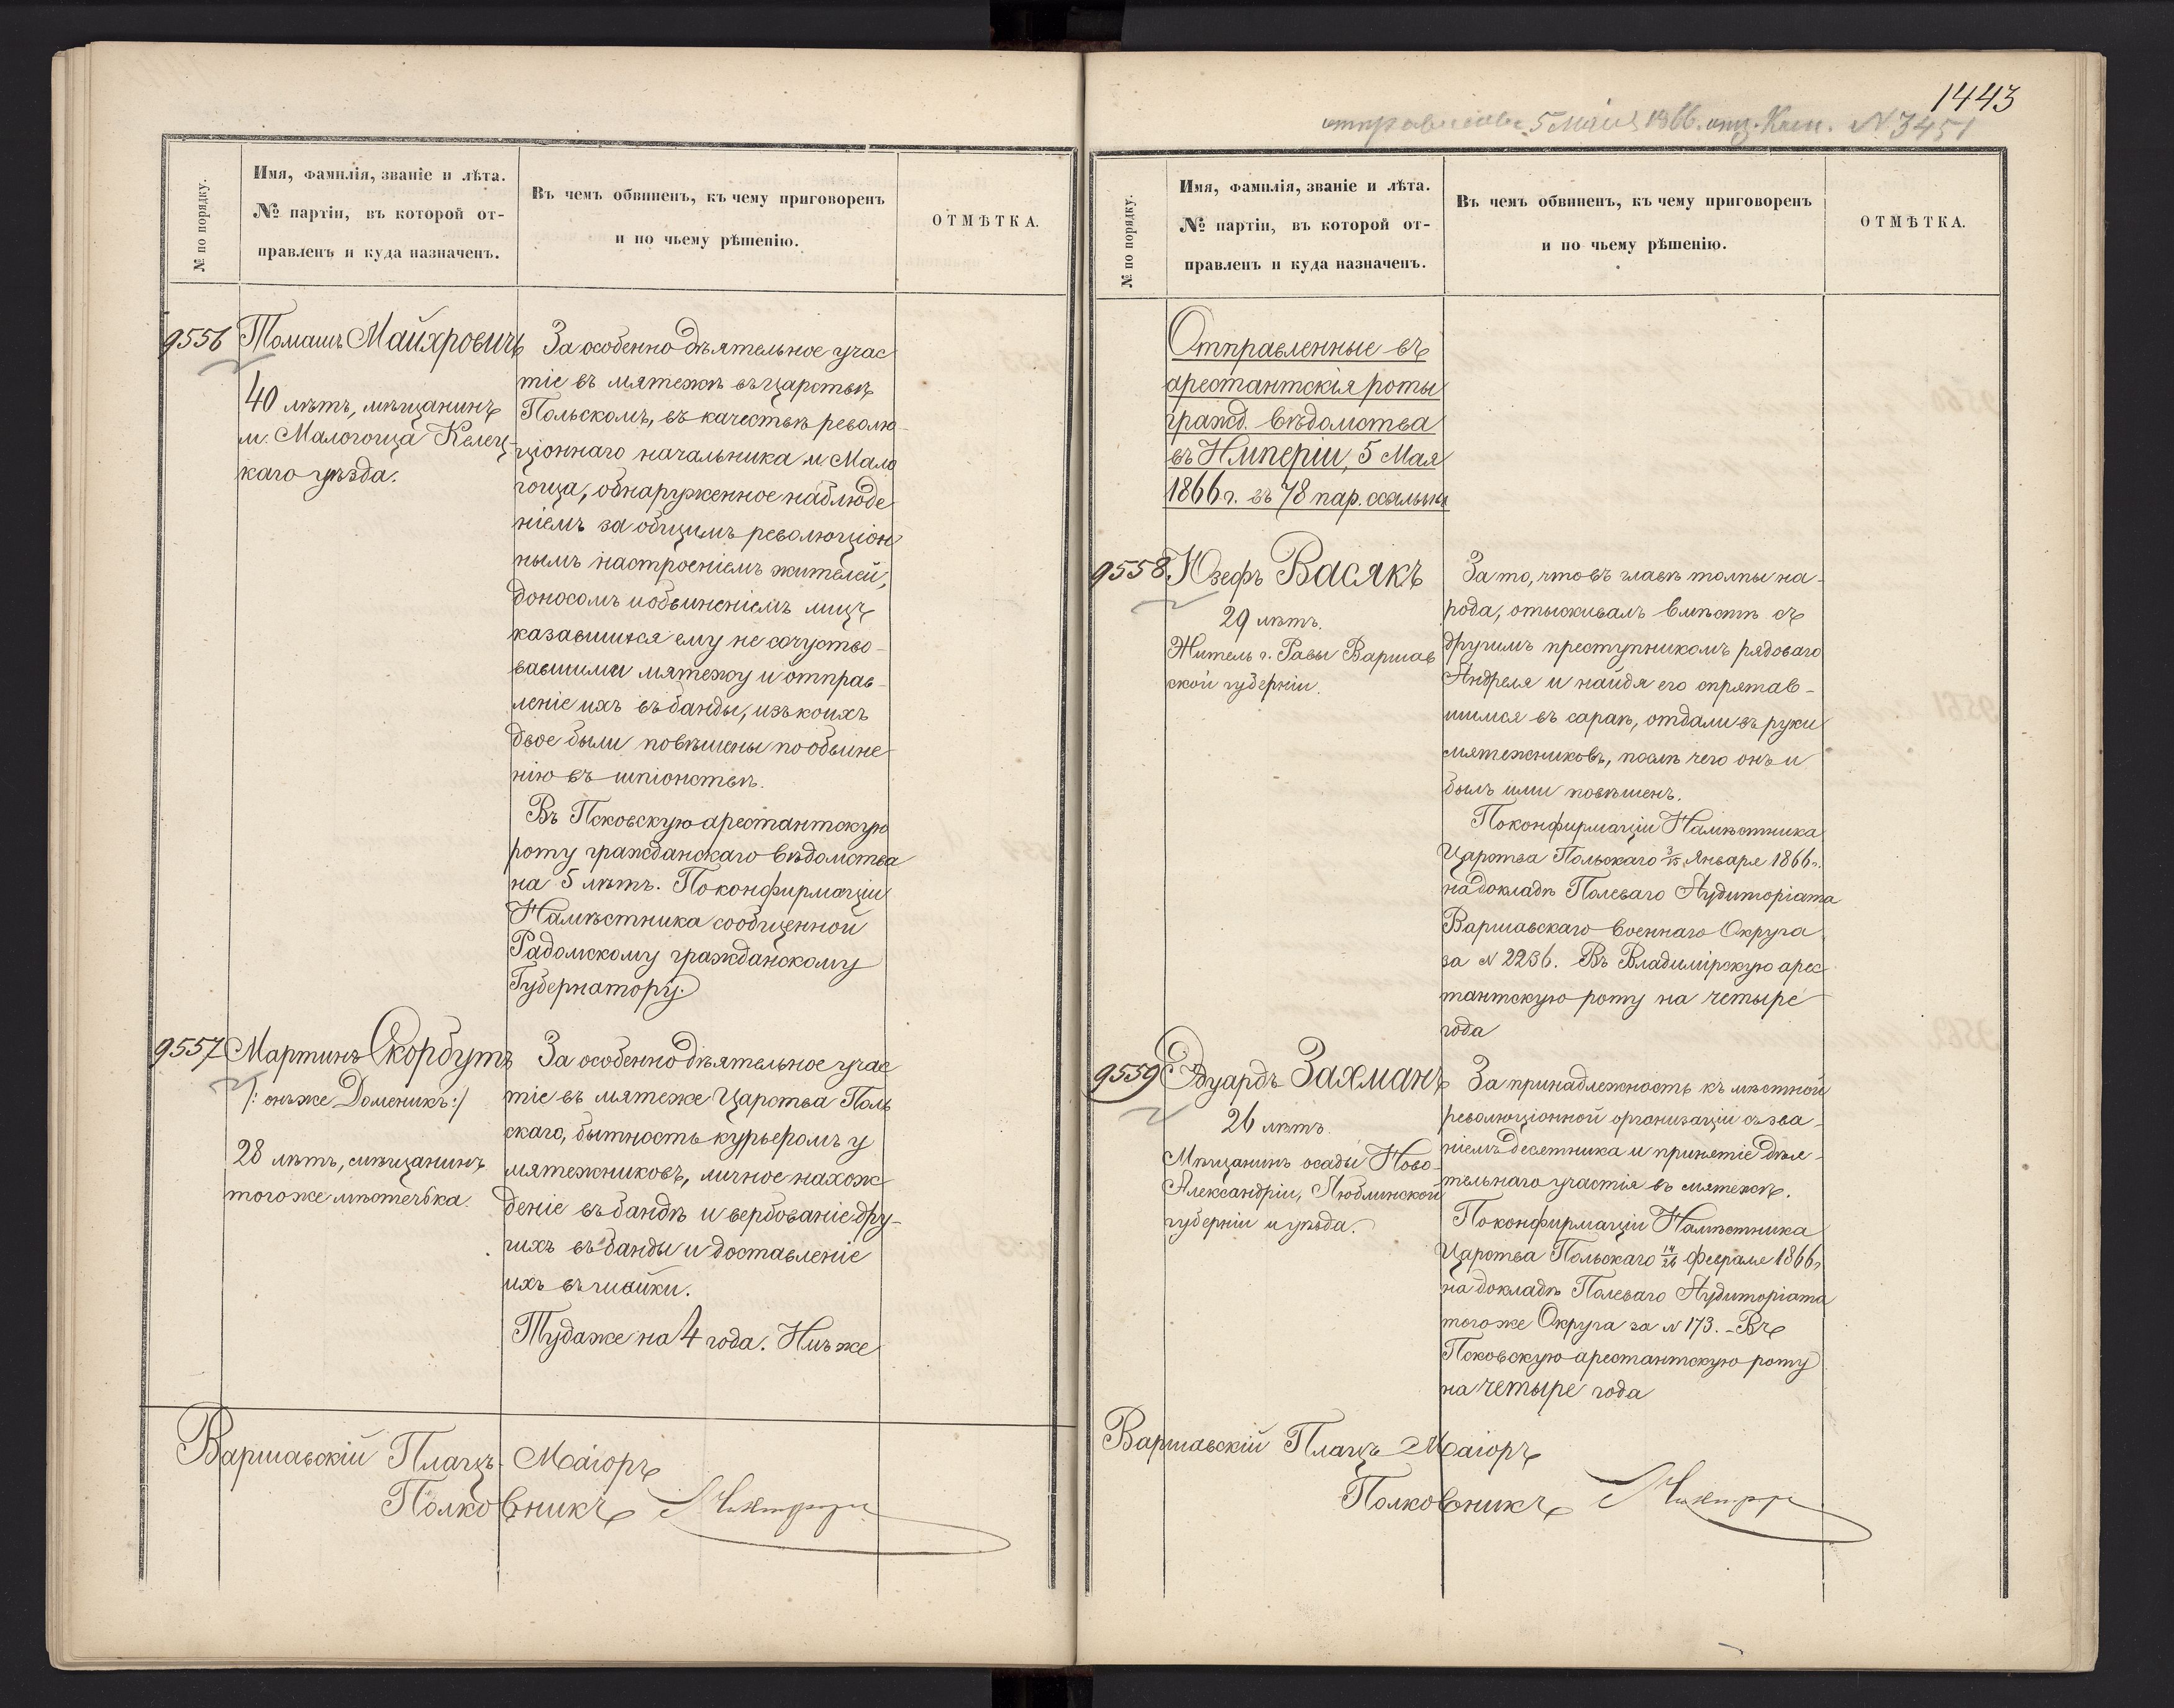 № по порядку.
Имя, фамилія, званіе и лѣта.
№ партіи, въ которой от-
правленъ и куда назначенъ.
Въ чемъ обвиненъ, къ чему приговоренъ
и по чьему рѣшенію.
ОТМѢТКА.
9556
Томашъ Майхровичъ
40 лѣтъ, мѣщанинъ
м. Малогоща Келец-
каго уѣзда.
За особенно дѣятельное учас
тіе въ мятежѣ въ царствѣ
Польскомъ, въ качествѣ револю-
ціоннаго начальника м. Мало
гоща, обнаруженное наблюде
ніемъ за общимъ революціон
нымъ настроеніемъ жителей,
доносомъ и обвиненіемъ лицъ
казавшихся ему не сочуство-
вавшими мятежу и отправ-
леніе ихъ въ банды, изъ коихъ
двое были повѣшены по обвине-
нію въ шпіонствѣ.
Въ Псковскую арестантскую
роту гражданскаго вѣдомства
на 5 лѣтъ. По конфирмаціи
Намѣстника сообщенной
Радомскому гражданскому
Губернатору.
9557
Мартинъ Скорбутъ
/: онъ же Доменикъ :/
28 лѣтъ, мѣщанинъ
того же мѣстечка.
За особенно дѣятельное учас
тіе въ мятеже Царства Поль
скаго, бытность курьеромъ у
мятежниковъ, личное нахож
деніе въ бандѣ и вербованіе дру-
гихъ въ банды и доставленіе
ихъ въ шайки.
Туда же на 4 года. Имъ же
Варшавскій Плацъ-Маіоръ
Полковникъ
1443
5 Мая 1866. № 3451
№ по порядку.
Имя, фамилія, званіе и лѣта.
№ партіи, въ которой от-
правленъ и куда назначенъ.
Въ чемъ обвиненъ, къ чему приговоренъ
и по чьему рѣшенію.
ОТМѢТКА.
Отправленные въ
арестантскія роты
гражд. вѣдомства
въ Имперіи, 5 Мая
1866 г. въ 78 пар. ссыльных
9558.
Юзефъ Васякъ
29 лѣтъ.
Житель г. Равы Варшав
ской губерніи.
За то, что въ главѣ толпы на-
рода, отыскивалъ вмѣстѣ съ
другимъ преступникомъ рядоваго
Андрея и найдя его спрятав-
шимся въ сараѣ, отдали въ руки
мятежниковъ, послѣ чего онъ и
былъ ими повѣшенъ.
По конфирмаціи Намѣстника
Царства Польскаго 3/15 Января 1866 г.
на докладѣ Полеваго Аудиторіата
Варшавскаго Военнаго Округа
за № 2236. Въ Владимірскую арес
тантскую роту на четыре
года
9559
Эдуардъ Захманъ
26 лѣтъ.
Мѣщанинъ осады Ново-
Александріи, Люблинской
губерніи и уѣзда.
За принадлежность къ мѣстной
революціонной организаціи съ зва-
ніемъ десятника и принятіе дѣя-
тельнаго участія въ мятежѣ.
По конфирмаціи Намѣстника
Царства Польскаго 14/26 Февраля 1866 г.
на докладѣ Полеваго Аудиторіата
того же Округа за № 173. - Въ
Псковскую арестантскую роту
на четыре года
Варшавскій Плацъ Маіоръ
Полковникъ